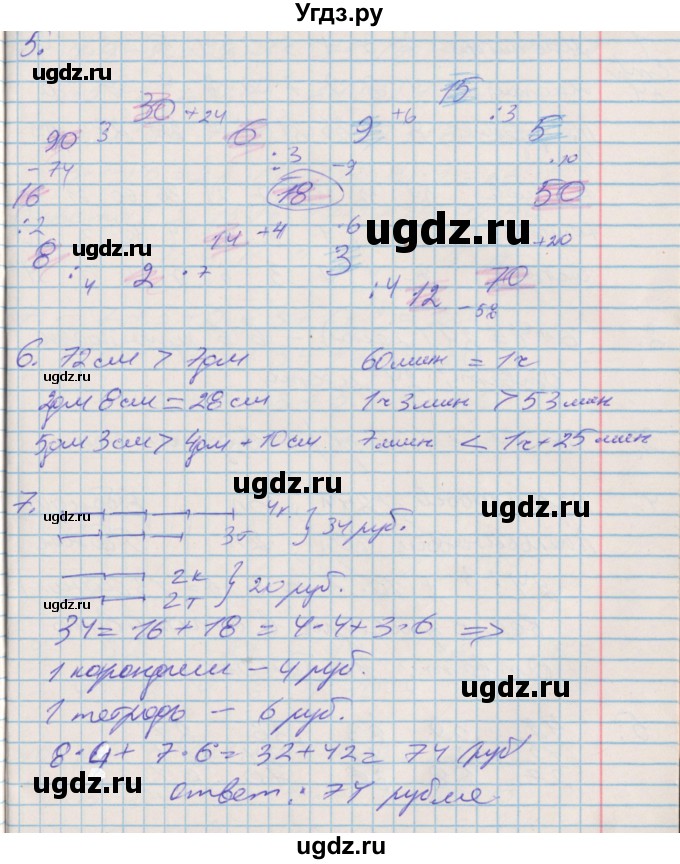 Угдз.ру
5.
15
30 +24 9 +6 :3
90 3 6 5
-74 :3 -9 ·10
16 18 50
:2 ugdz.ru
ugdz.ru 14 +4 ·6 +20
8 :4 2 ·7 3 70
:4 12 -58
ugdz.ru
6. 72 см > 7 дм 60 мин = 1 ч
ugdz.ru
2 дм 8 см = 28 см 1 ч 3 мин > 53 мин
5 дм 3 см > 4 дм + 10 см 7 мин < 1 ч + 25 мин
ugdz.ru
7. 4к.
ugdz.ru
3т } 34 руб.
2к } 20 руб.
ugdz.ru 2т
34 = 16 + 18 = 4·4 + 3·6 =>
ugdz.ru
1 карандаш – 4 руб.
ugdz.ru
1 тетрадь – 6 руб.
8·4 + 7·6 = 32 + 42 = 74 руб
ugdz.ru
ответ: 74 рубля.
ugdz.ru
Угдз.ру